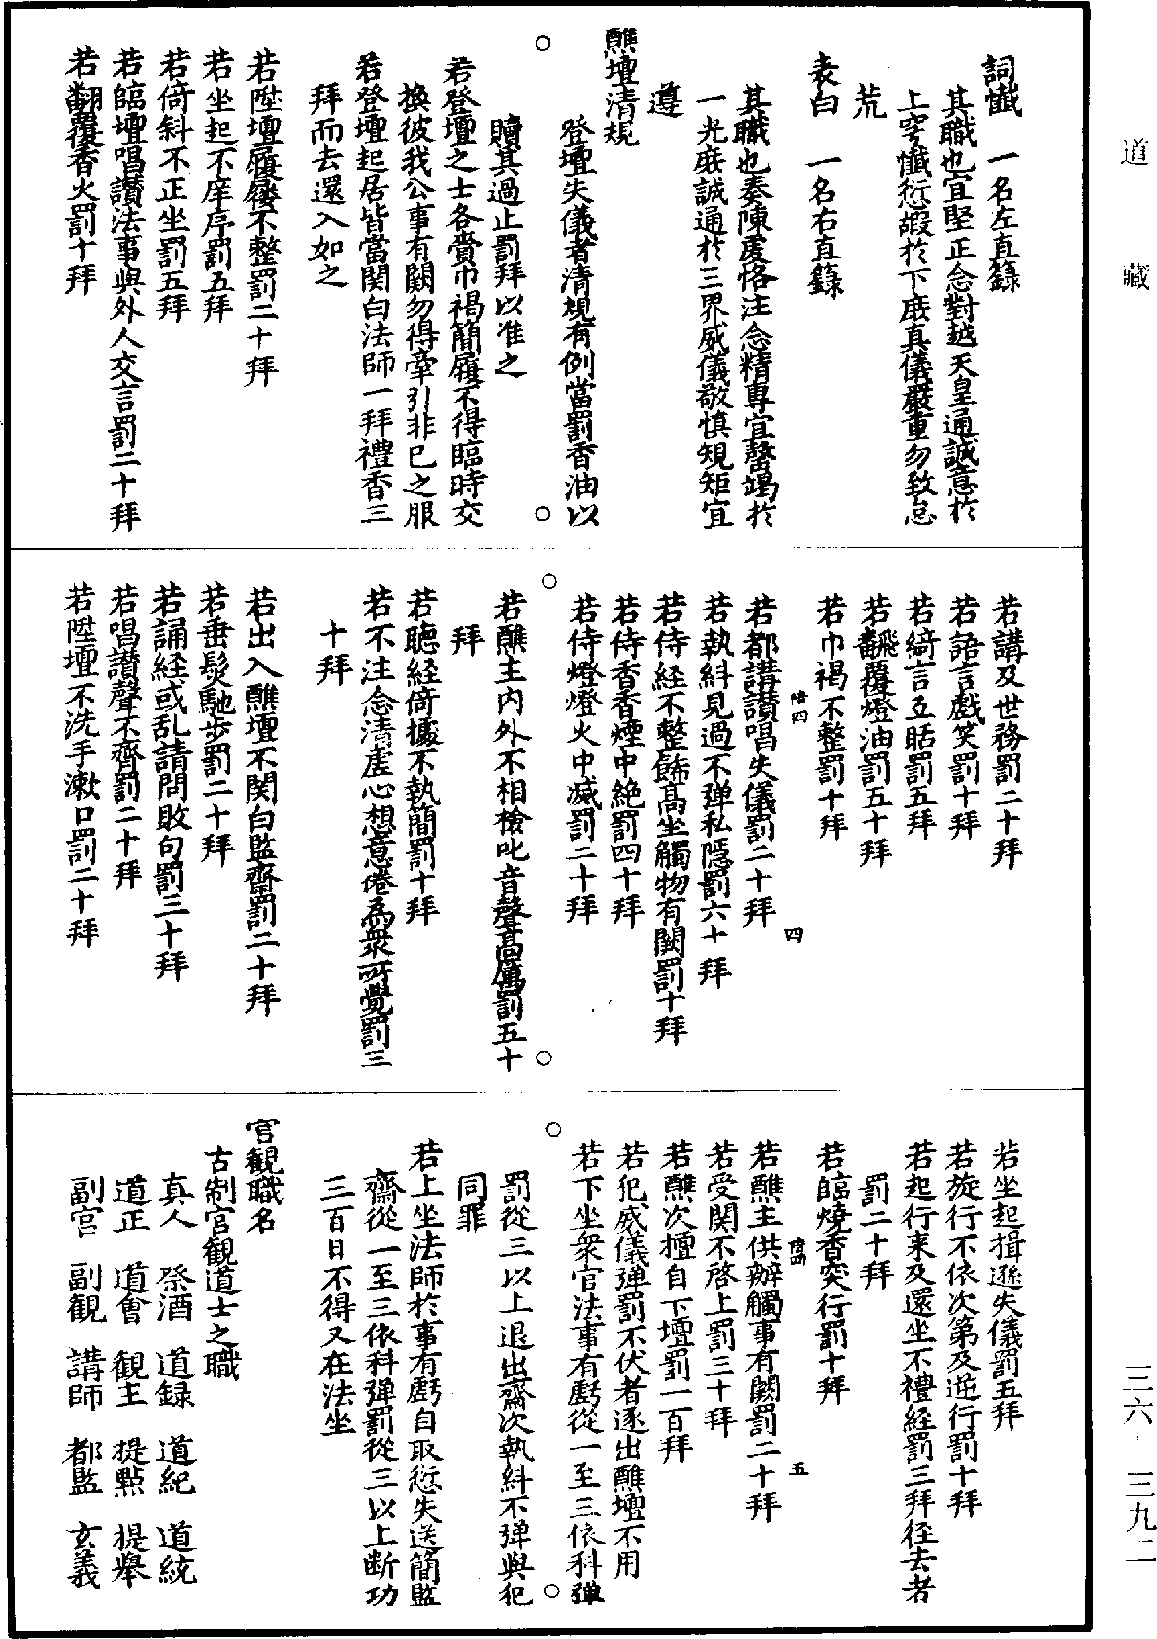 道藏
三六·三九二
詞懺　一名左直籙
其職也宜堅正念對越天皇通誠意於
上穹懺愆嘏於下庶真儀嚴重勿致怠
荒
表白　一名右直籙
其職也奏陳虔恪注念精專宜罄竭於
一光庶誠通於三界威儀敬慎規矩宜
遵
醮壇清規
登壇失儀者清規有例當罰香油以
贖其過止罰拜以准之
若登壇之士各賫巾褐簡履不得臨時交
換彼我公事有闕勿得牽引非已之服
若登壇起居皆當関白法師一拜禮香三
拜而去還入如之
若陞壇履屐不整罰二十拜
若坐起不庠序罰五拜
若倚斜不正坐罰五拜
若臨壇唱讃法事與外人交言罰二十拜
若翻覆香火罰十拜
若講及世務罰二十拜
若語言戲笑罰十拜
若綺言互㗖罰五拜
若飜覆燈油罰五十拜
若巾褐不整罰十拜
若都講讃唱失儀罰二十拜
若執糾見過不彈私隱罰六十拜
若侍經不整飾髙坐觸物有闕罰十拜
若侍香香煙中絶罰四十拜
若侍燈燈火中滅罰二十拜
若醮主内外不相檢叱音聲髙厲罰五十
拜
若聽経倚據不執簡罰十拜
若不注念清虛心想意倦為衆所覺罰三
十拜
若出入醮壇不関白監齋罰二十拜
若垂髮馳步罰二十拜
若誦経或乱請問敗句罰三十拜
若唱讃聲不齊罰二十拜
若陞壇不洗手漱口罰二十拜
四
若坐起揖遜失儀罰五拜
若旋行不依次第及逆行罰十拜
若起行来及還坐不禮経罰三拜径去者
罰二十拜
若臨燒香突行罰十拜
若醮主供辦觸事有闕罰二十拜
若受関不啓上罰三十拜
若醮次擅自下壇罰一百拜
若犯威儀彈罰不伏者逐出醮壇不用
若下坐衆官法事有虧從一至三依科彈
罰從三以上退出齋次執糾不彈與犯
同罪
若上坐法師於事有虧自取愆失送簡監
齋從一至三依科彈罰從三以上断功
三百日不得又在法坐
五
宫観職名
古制宫観道士之職
真人　祭酒　道録　道紀　道統
道正　道會　観主　提點　提舉
副宫　副観　講師　都監　玄義